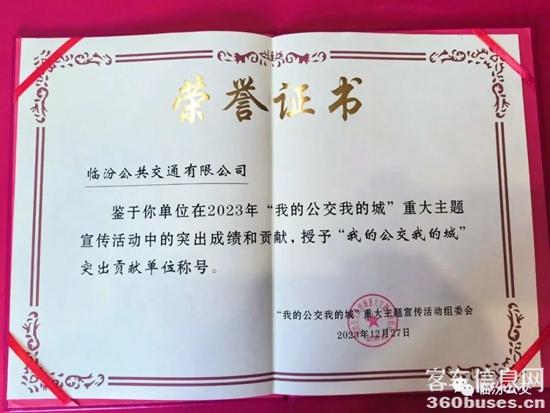 荣誉证书
临汾公共交通有限公司
鉴于你单位在2023年“我的公交我的城”重大主题
宣传活动中的突出成绩和贡献，授予“我的公交我的城”
突出贡献单位称号。
“我的公交我的城”重大主题宣传活动组委会
2023年12月27日
客车信息网
临汾公交
360buses.cn